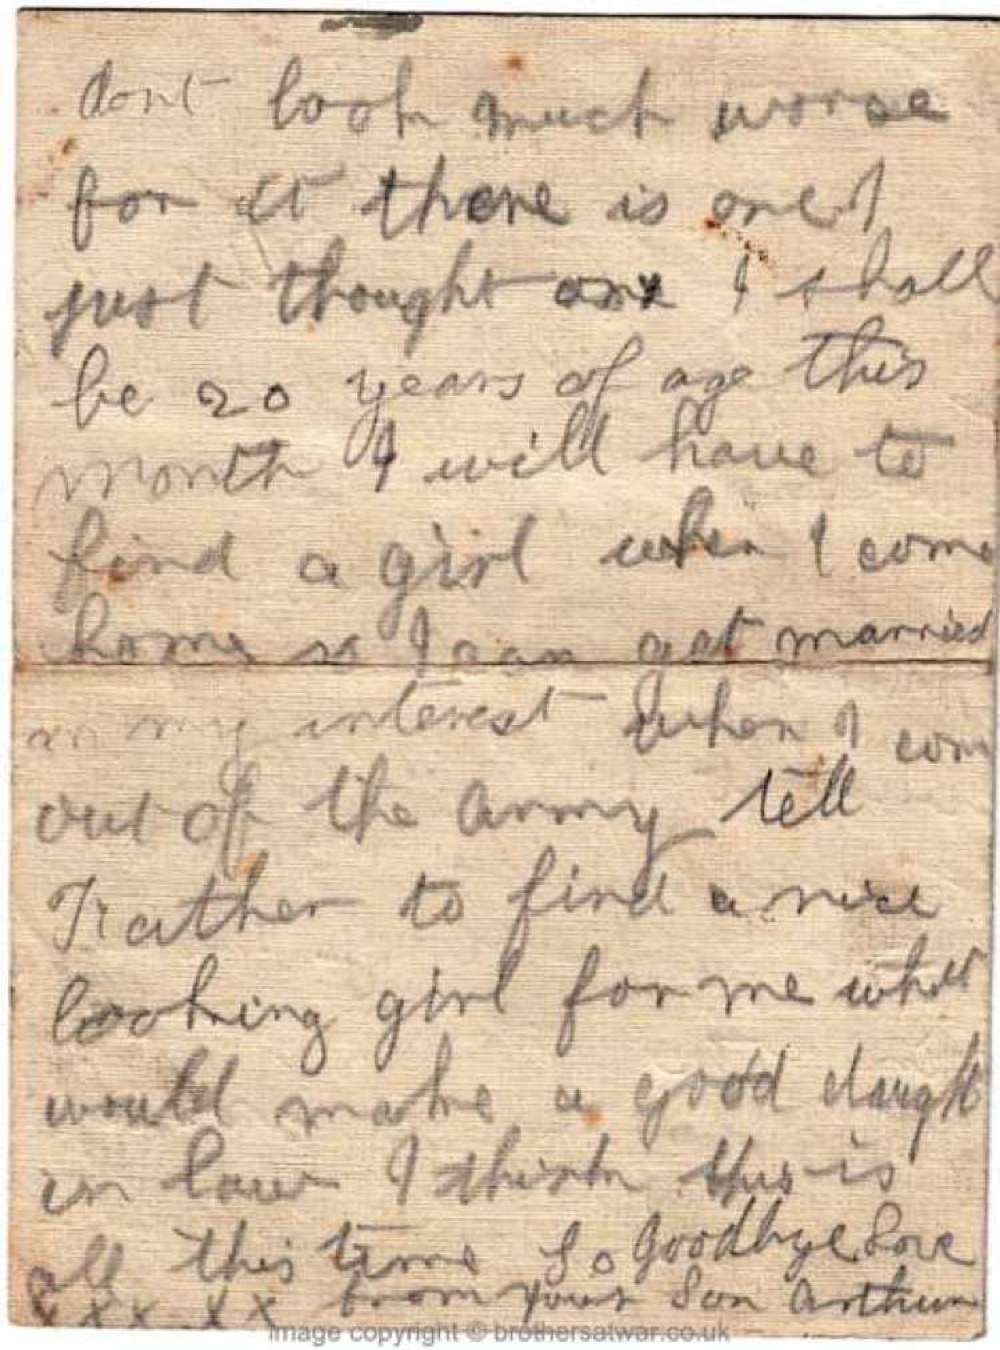 dont look much worse
for it there is one I
just thought I shall
be 20 years of age this
month I will have to
find a girl when I come
home so I can get married
in my interest when I com
out of the army tell
Father to find a nice
looking girl for me what
would make a good daught
in law I think this is
all this time So Goodbye Love
x x x x x from your Son Arthur
image copyright © brothersatwar.co.uk